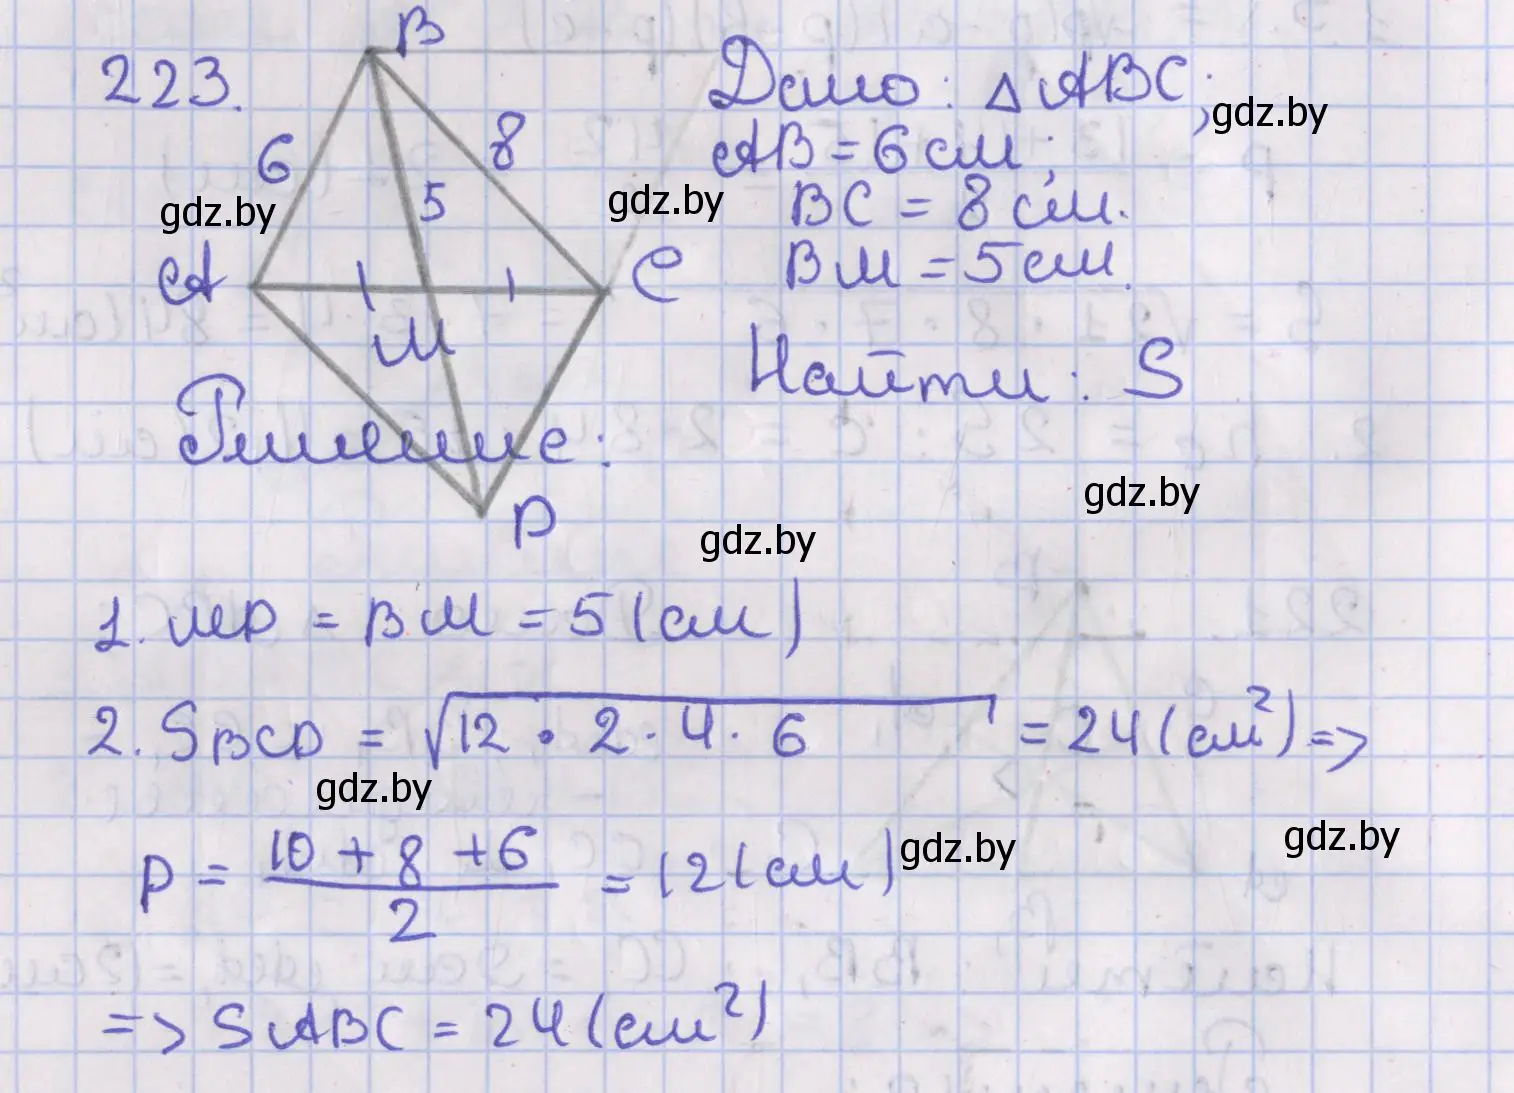 223.
B
6
8
5
A
C
M
D
Дано: △ABC;
AB = 6 см;
BC = 8 см.
BM = 5 см.
Найти: S
Решение:
1. MD = BM = 5 (см)
2. SBCD = √12 · 2 · 4 · 6 = 24 (см²) =>
p = (10 + 8 + 6)/2 = 12 (см)
=> SABC = 24 (см²)
gdz.by
gdz.by
gdz.by
gdz.by
gdz.by
gdz.by
gdz.by
gdz.by